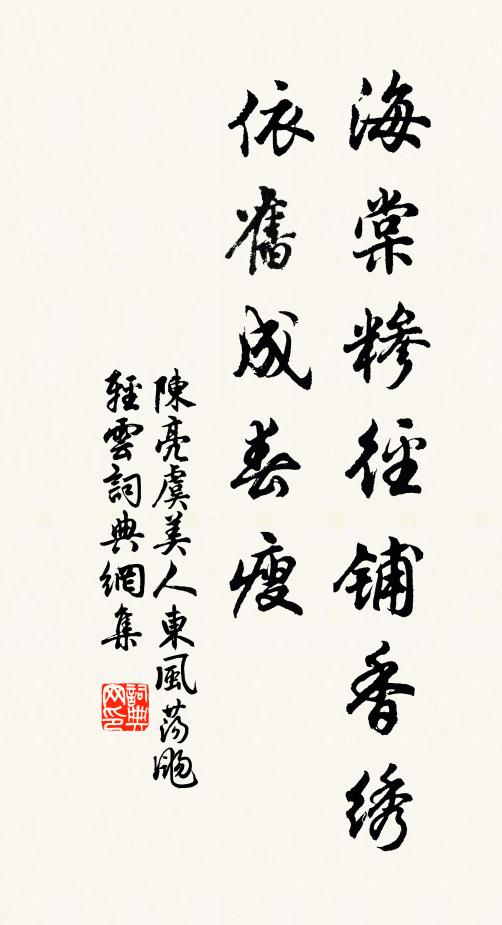 海棠糝徑鋪香绣
依舊成春瘦
陳亮虞美人東風蕩颺
輕雲詞典網集
詞典网印